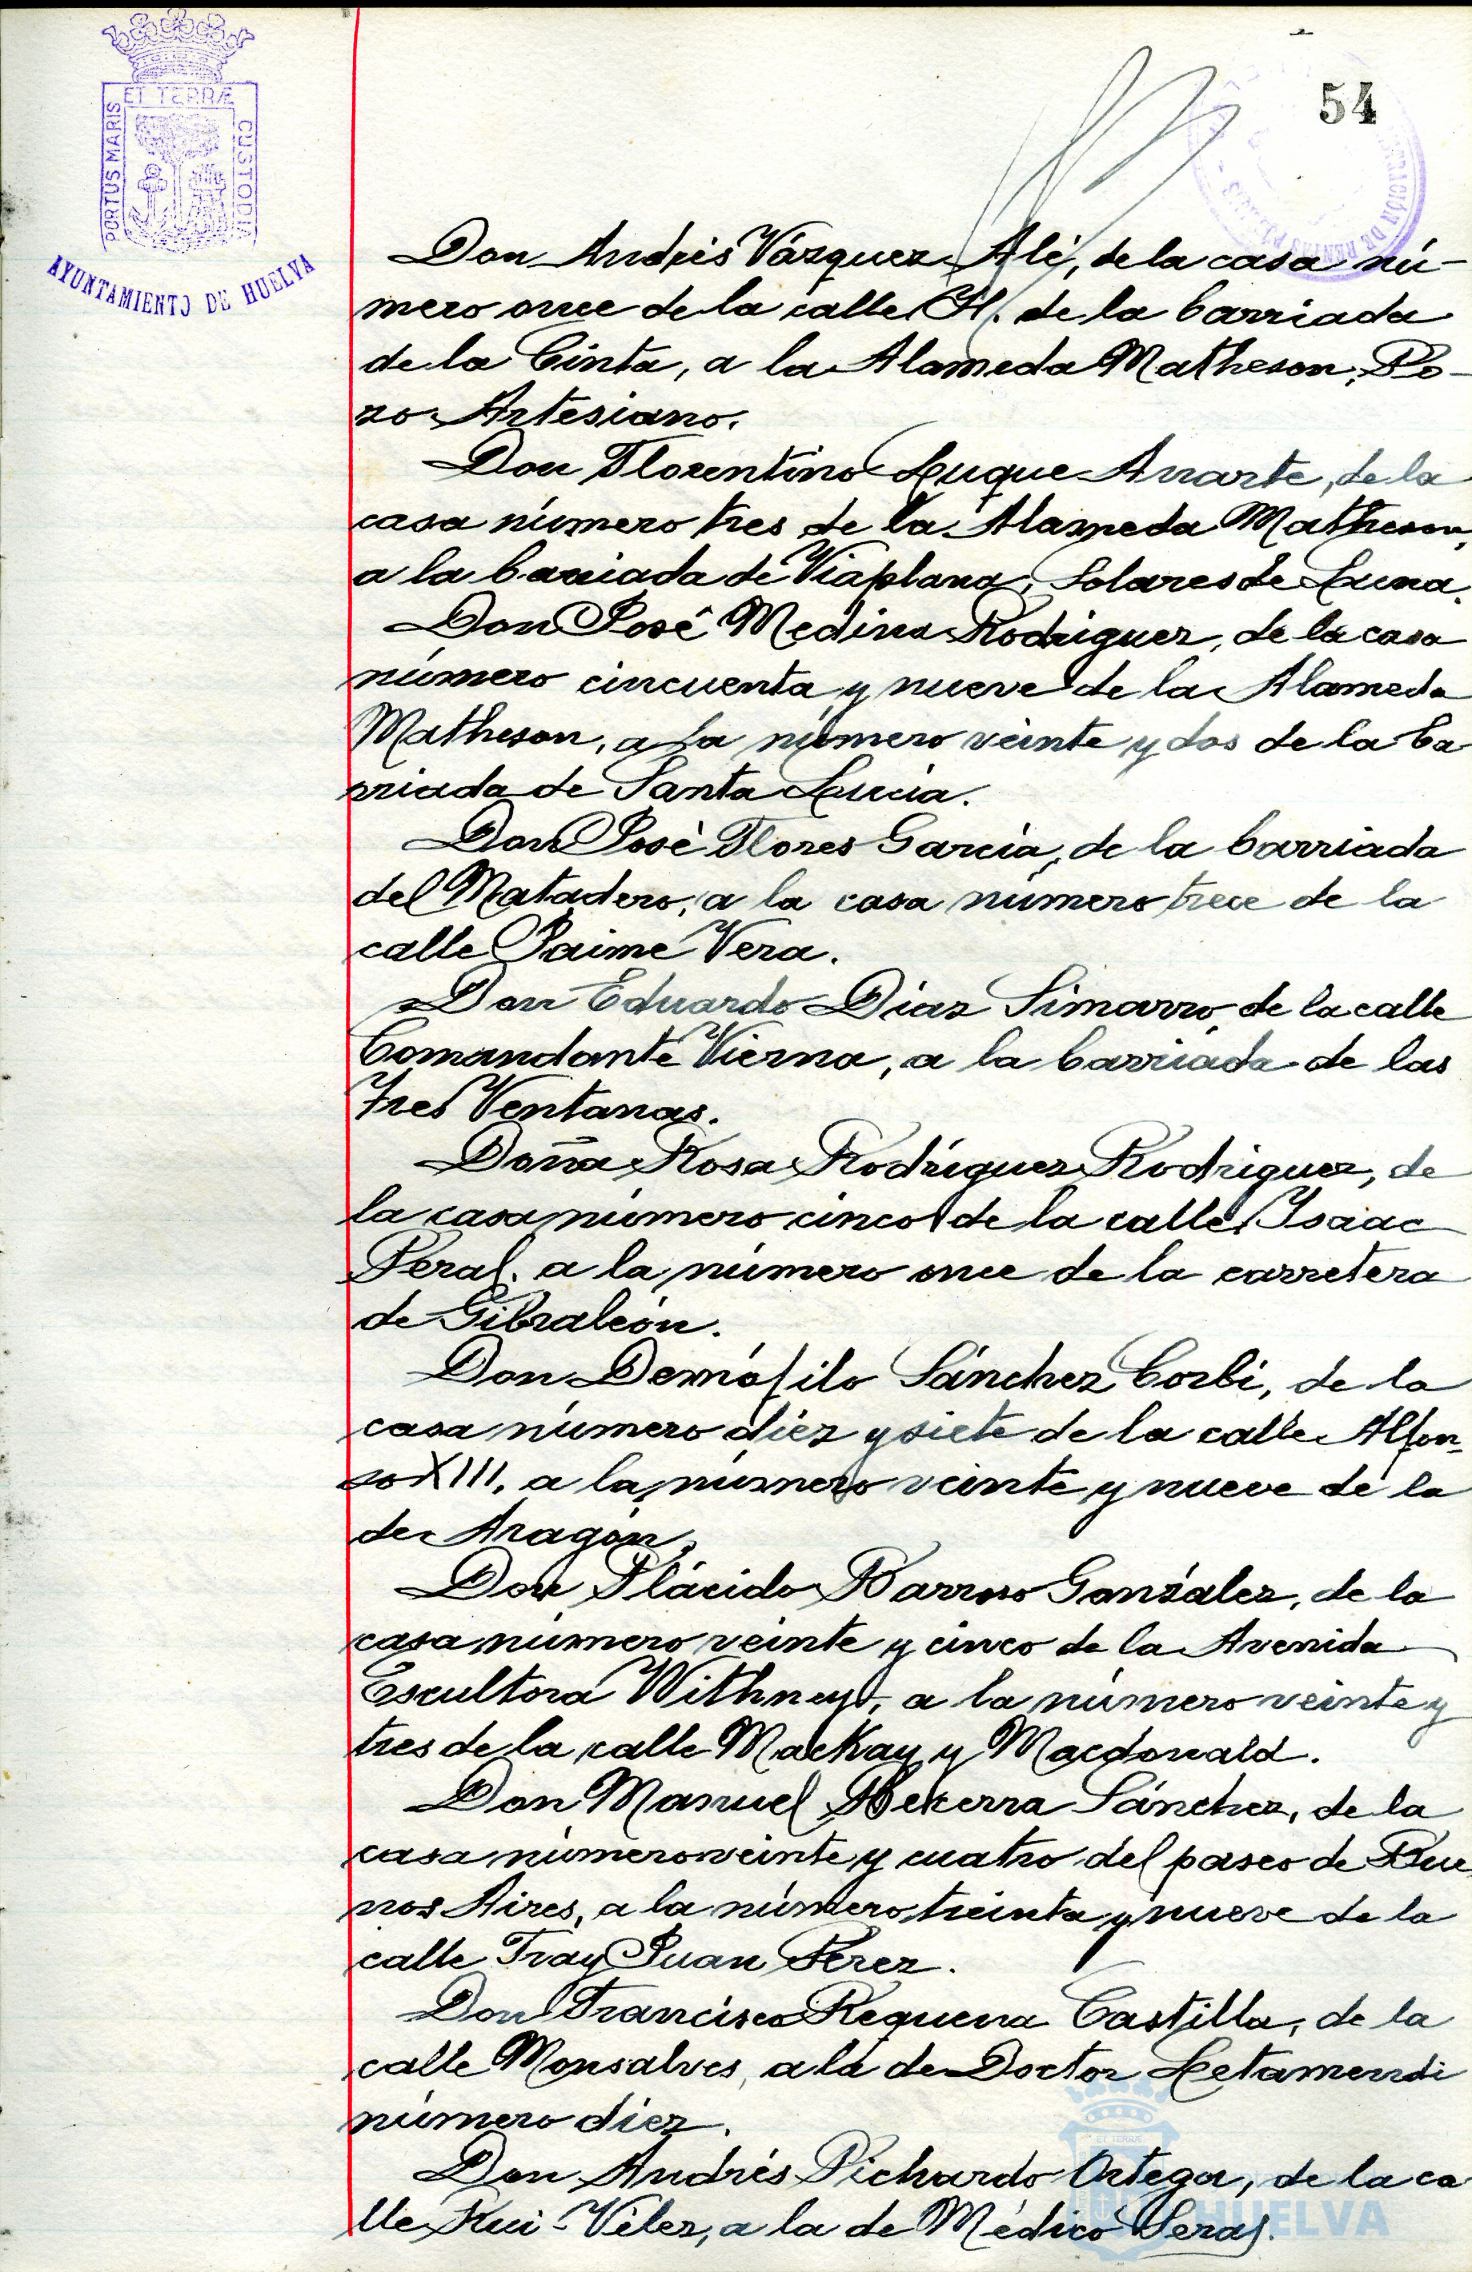 ET TERRÆ
PORTUS MARIS
CUSTODIA
AYUNTAMIENTO DE HUELVA
54
Don Andrés Vázquez Alé, de la casa nú-
mero once de la calle H. de la barriada
de la Cinta, a la Alameda Matheson, Po-
zo Artesiano.
Don Florentino Luque Arrarte, de la
casa número tres de la Alameda Matheson,
a la barriada de Viaplana, Solares de Luna.
Don José Medina Rodriguez, de la casa
número cincuenta y nueve de la Alameda
Matheson, a la número veinte y dos de la ba
rriada de Santa Lucia.
Don José Flores García, de la barriada
del Matadero, a la casa número trece de la
calle Jaime Vera.
Don Eduardo Diaz Simarro, de la calle
Comandante Vierna, a la barriada de las
Tres Ventanas.
Doña Rosa Rodríguez Rodriguez, de
la casa número cinco de la calle Isaac
Peral, a la número once de la carretera
de Gibraleón.
Don Demófilo Sánchez Corbi, de la
casa número diez y siete de la calle Alfon-
so XIII, a la número veinte y nueve de la
de Aragón.
Don Plácido Barroso González, de la
casa número veinte y cinco de la Avenida
Escultora Withney, a la número veinte y
tres de la calle MacKay y Macdonald.
Don Manuel Becerra Sánchez, de la
casa número veinte y cuatro del paseo de Bue
nos Aires, a la número treinta y nueve de la
calle Fray Juan Perez.
Don Francisco Requena Castilla, de la
calle Monsalves, a la de Doctor Letamendi
número diez.
Don Andrés Pichardo Ortega, de la ca
lle Rui-Vélez, a la de Médico Seras.
HUELVA